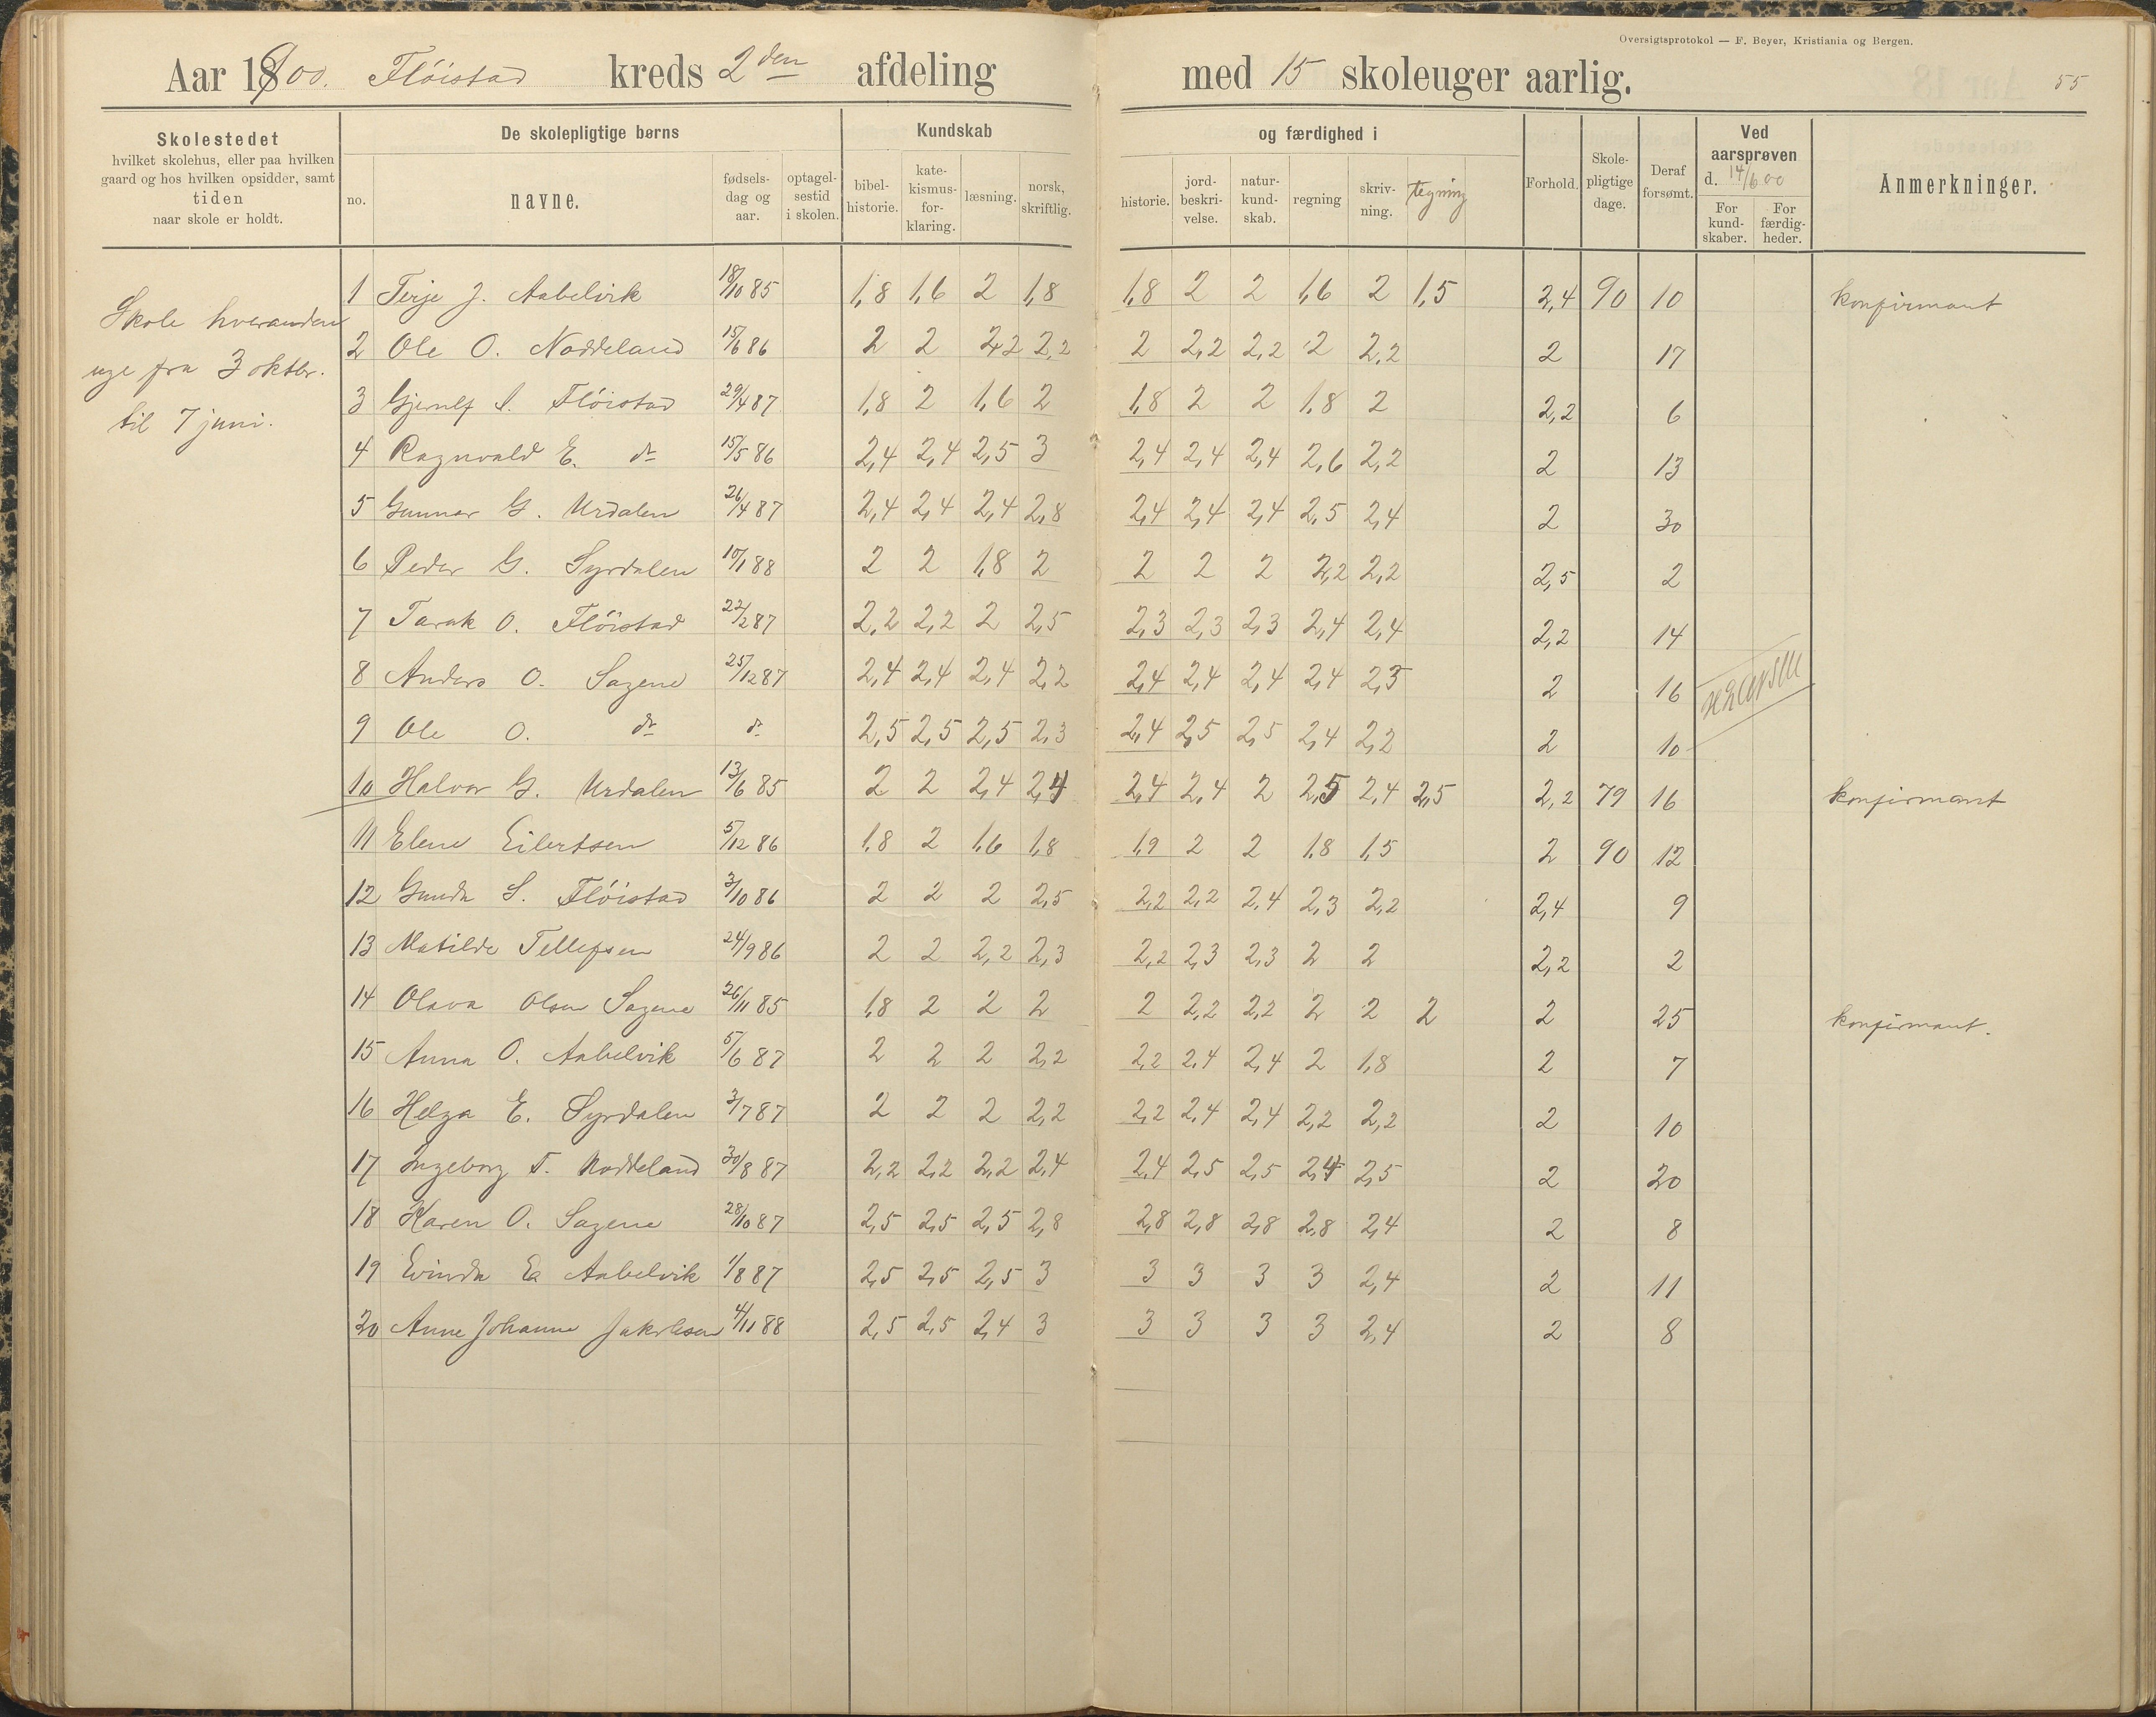 Oversigtsprotokol — F. Beyer, Kristiania og Bergen.
Aar 1900. Flöistad kreds 2den afdeling med 15 skoleuger aarlig. 55
Skolestedet
hvilket skolehus, eller paa hvilken
gaard og hos hvilken opsidder, samt
tiden
naar skole er holdt.
De skolepligtige børns
no. navne. fødsels-dag og aar. optagel-sestid i skolen.
Kundskab og færdighed i
bibel-historie. kate-kismus-for-klaring. læsning. norsk, skriftlig. historie. jord-beskri-velse. natur-kund-skab. regning skriv-ning. tegning
Forhold. Skole-pligtige dage. Deraf forsømt.
Ved aarsprøven d. 14/6 00
For kund-skaber. For færdig-heder.
Anmerkninger.
Skole hveranden
uge fra 3 oktbr.
til 7 juni.
1 Terje J. Aabelvik 18/10 85 1,8 1,6 2 1,8 1,8 2 2 1,6 2 1,5 2,4 90 10 konfirmant
2 Ole O. Noddeland 15/6 86 2 2 2,2 2,2 2 2,2 2,2 2 2,2 2 17
3 Gjerulf S. Flöistad 29/4 87 1,8 2 1,6 2 1,8 2 2 1,8 2 2,2 6
4 Ragnvald E. do 15/5 86 2,4 2,4 2,5 3 2,4 2,4 2,4 2,6 2,2 2 13
5 Gunnar G. Urdalen 26/4 87 2,4 2,4 2,4 2,8 2,4 2,4 2,4 2,5 2,4 2 30
6 Peder G. Syrdalen 10/1 88 2 2 1,8 2 2 2 2 2,2 2,2 2,5 2
7 Tarak O. Flöistad 22/2 87 2,2 2,2 2 2,5 2,3 2,3 2,3 2,4 2,4 2,2 14
8 Anders O. Sagene 25/12 87 2,4 2,4 2,4 2,2 2,4 2,4 2,4 2,4 2,3 2 16
9 Ole O. do do 2,5 2,5 2,5 2,3 2,4 2,5 2,5 2,4 2,2 2 10
10 Halvor G. Urdalen 13/6 85 2 2 2,4 2,4 2,4 2,4 2 2,5 2,4 2,5 2,2 79 16 konfirmant
11 Elene Eilertsen 5/12 86 1,8 2 1,6 1,8 1,9 2 2 1,8 1,5 2 90 12
12 Gunda S. Flöistad 3/10 86 2 2 2 2,5 2,2 2,2 2,4 2,3 2,2 2,4 9
13 Matilde Tellefsen 24/9 86 2 2 2,2 2,3 2,2 2,3 2,3 2 2 2,2 2
14 Olava Olsen Sagene 26/11 85 1,8 2 2 2 2 2,2 2,2 2 2 2 2 25 konfirmant.
15 Anna O. Aabelvik 5/6 87 2 2 2 2,2 2,2 2,4 2,4 2 1,8 2 7
16 Helga E. Syrdalen 3/7 87 2 2 2 2,2 2,2 2,4 2,4 2,2 2,2 2 10
17 Ingeborg T. Noddeland 30/8 87 2,2 2,2 2,2 2,4 2,4 2,5 2,5 2,4 2,5 2 20
18 Karen O. Sagene 28/10 87 2,5 2,5 2,5 2,8 2,8 2,8 2,8 2,8 2,4 2 8
19 Evinda Ea Aabelvik 1/8 87 2,5 2,5 2,5 3 3 3 3 3 2,4 2 11
20 Anne Johanne Jakobsen 4/11 88 2,5 2,5 2,4 3 3 3 3 3 2,4 2 8